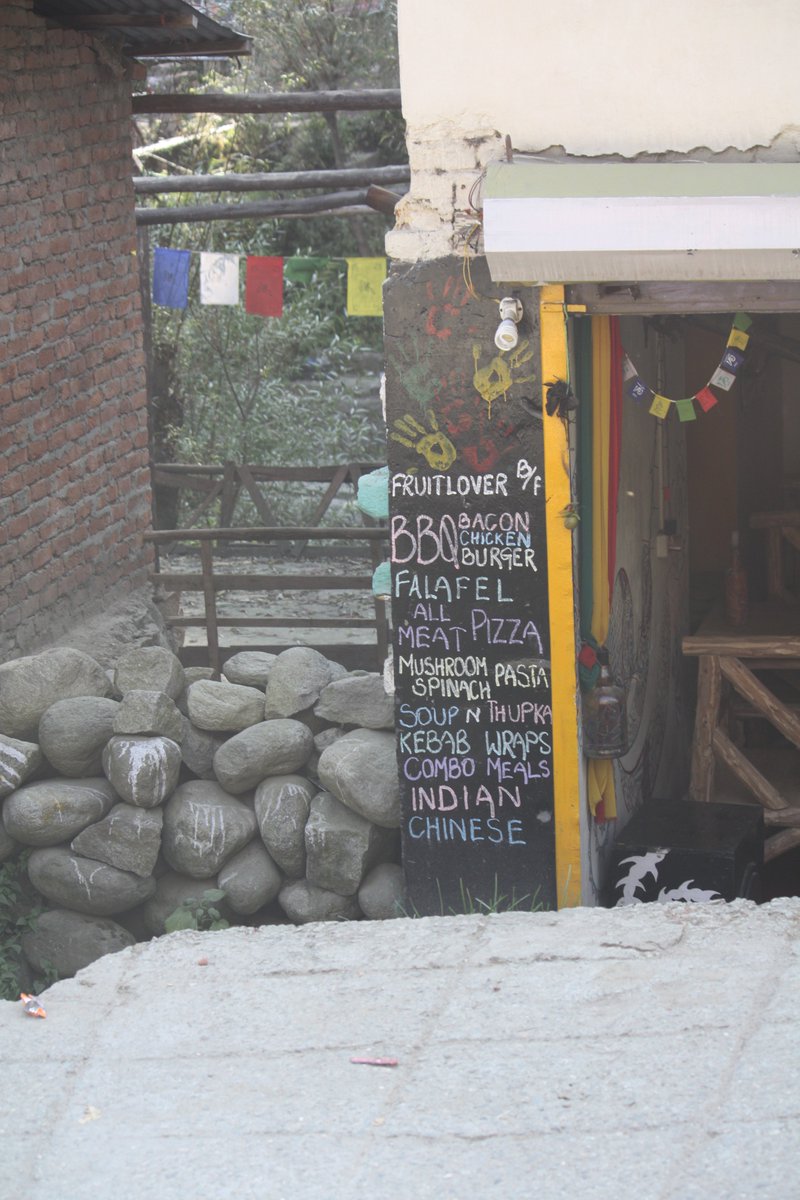 FRUITLOVER B/F
BBQ BACON
CHICKEN
BURGER
FALAFEL
ALL
MEAT PIZZA
MUSHROOM PASTA
SPINACH
SOUP N THUPKA
KEBAB WRAPS
COMBO MEALS
INDIAN
CHINESE